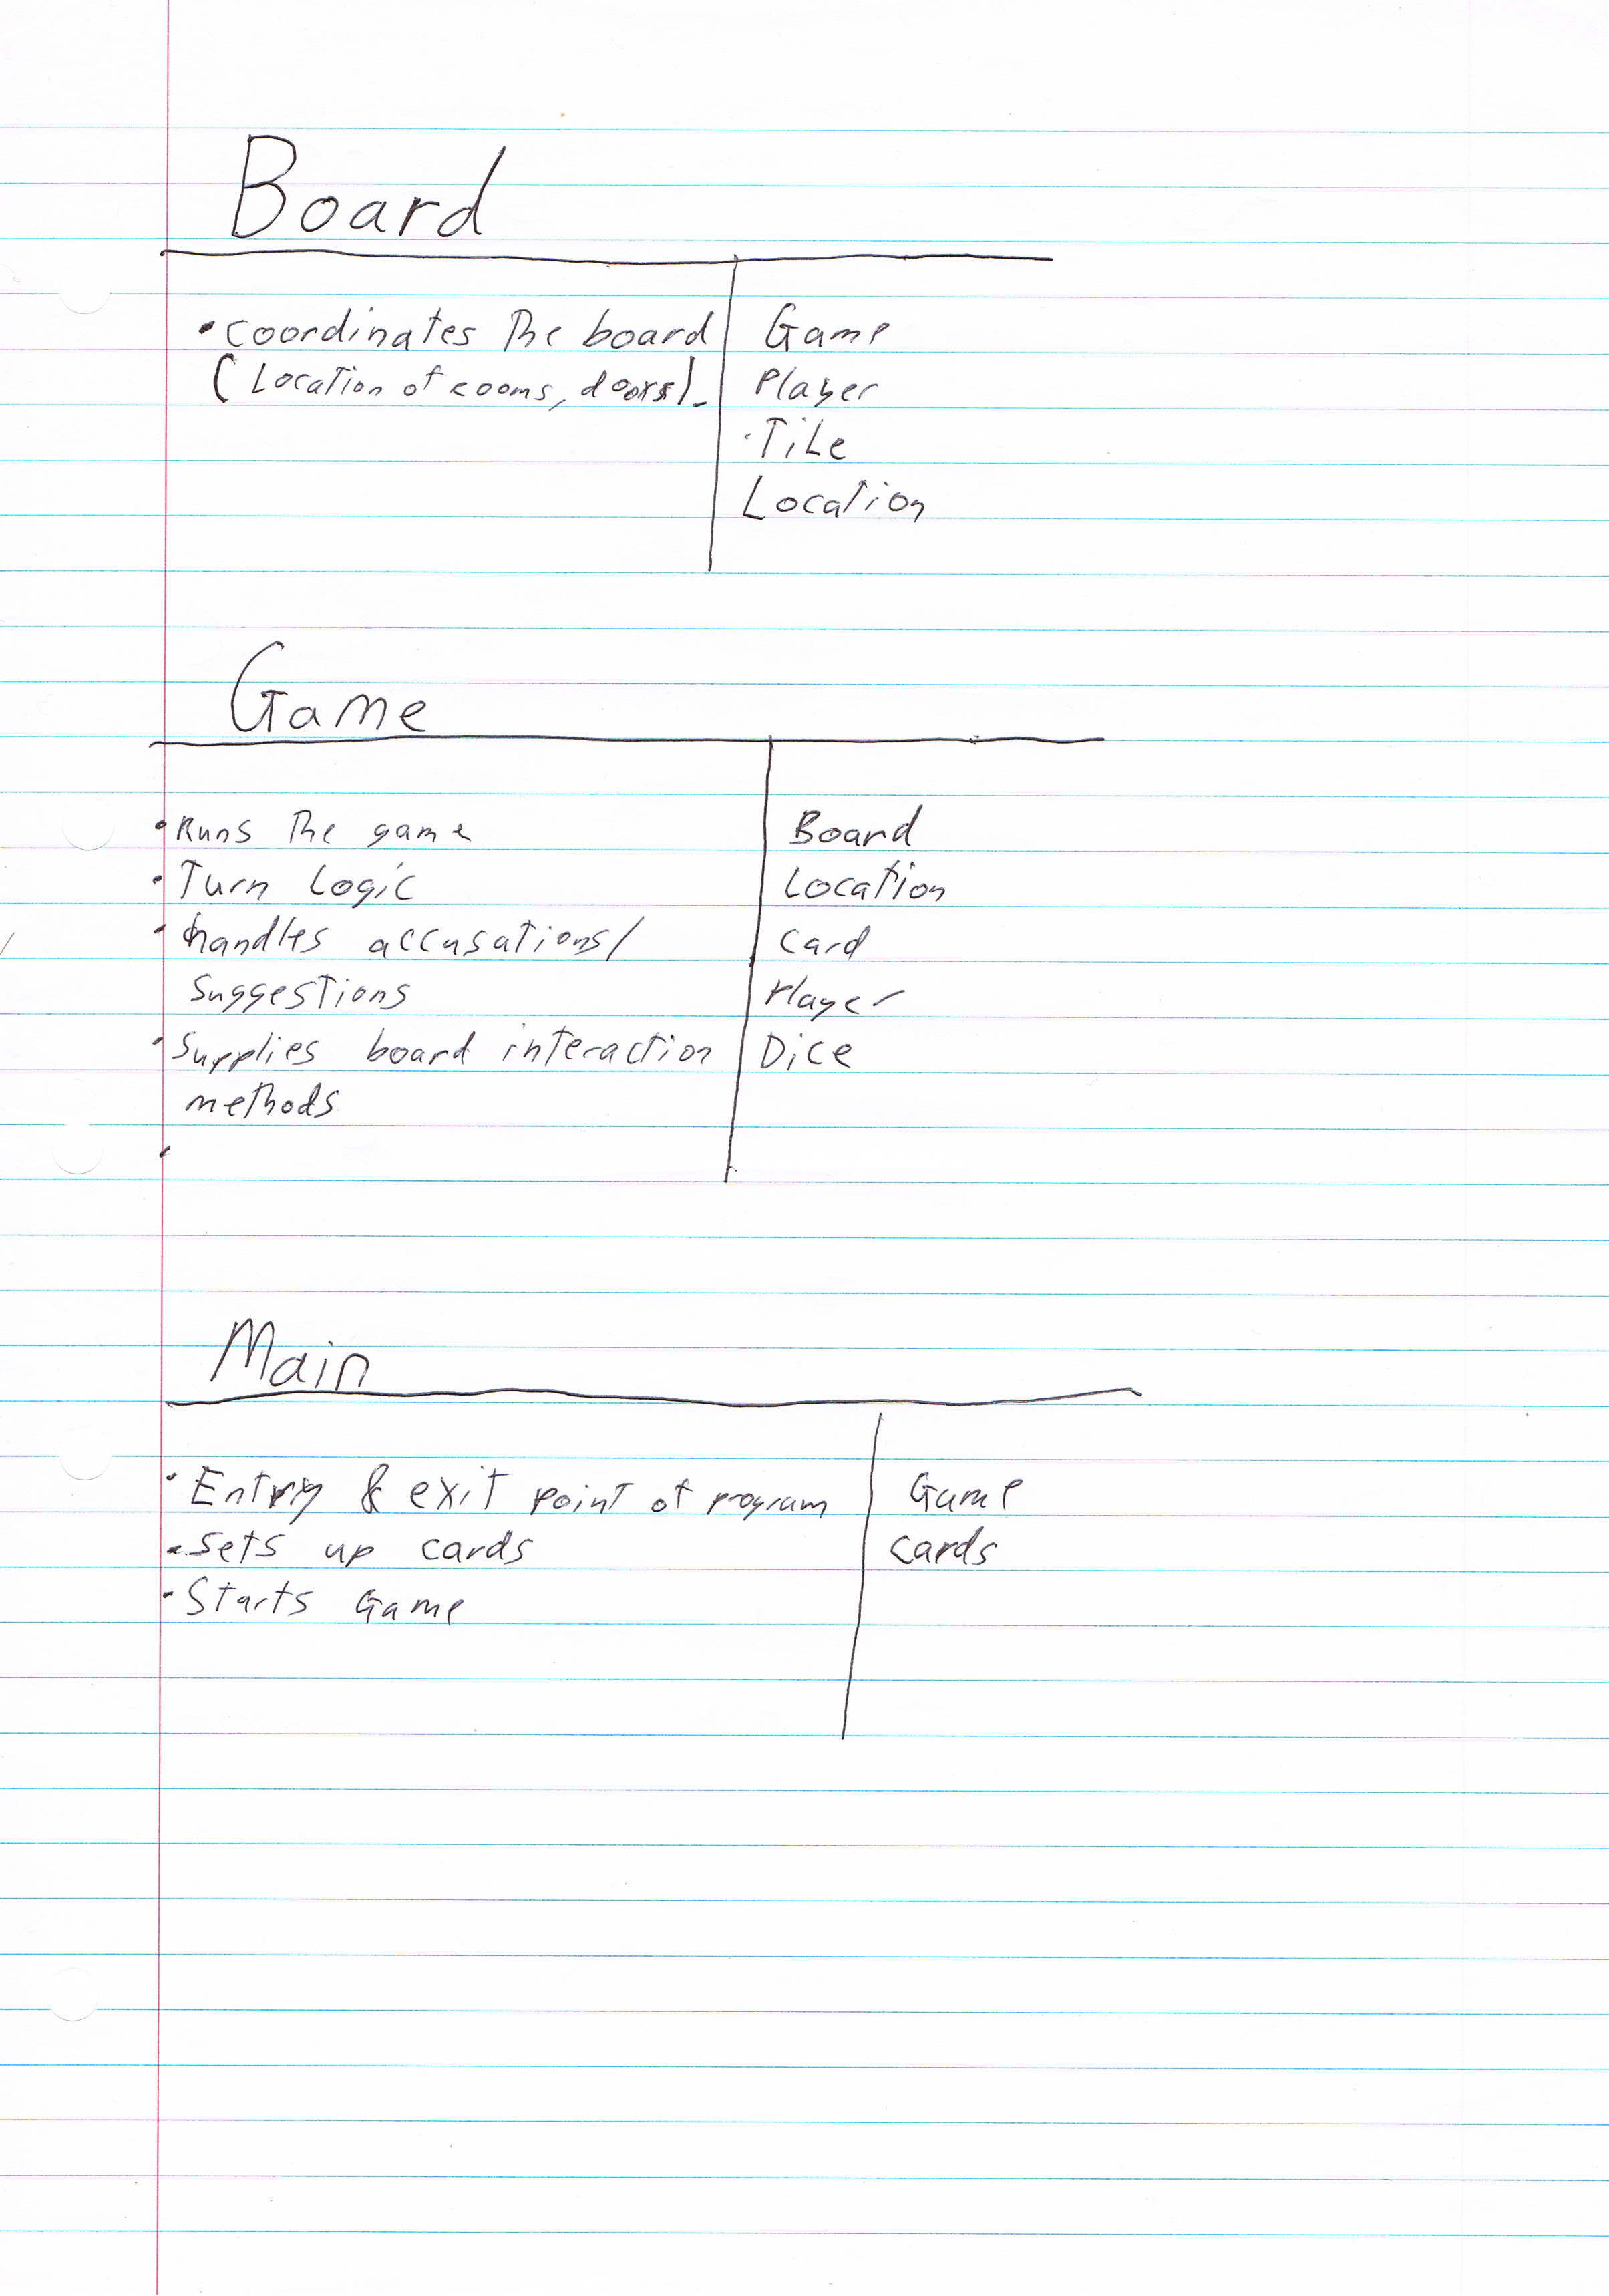 Board
• coordinates The board
(Location of rooms, doors).
Game
Player
Tile
Location
Game
• Runs The game
• Turn Logic
• handles accusations/
suggestions
• Supplies board interaction
methods
•
Board
Location
Card
Player
Dice
Main
• Entry & exit point of program
• Sets up cards
• Starts Game
Game
Cards